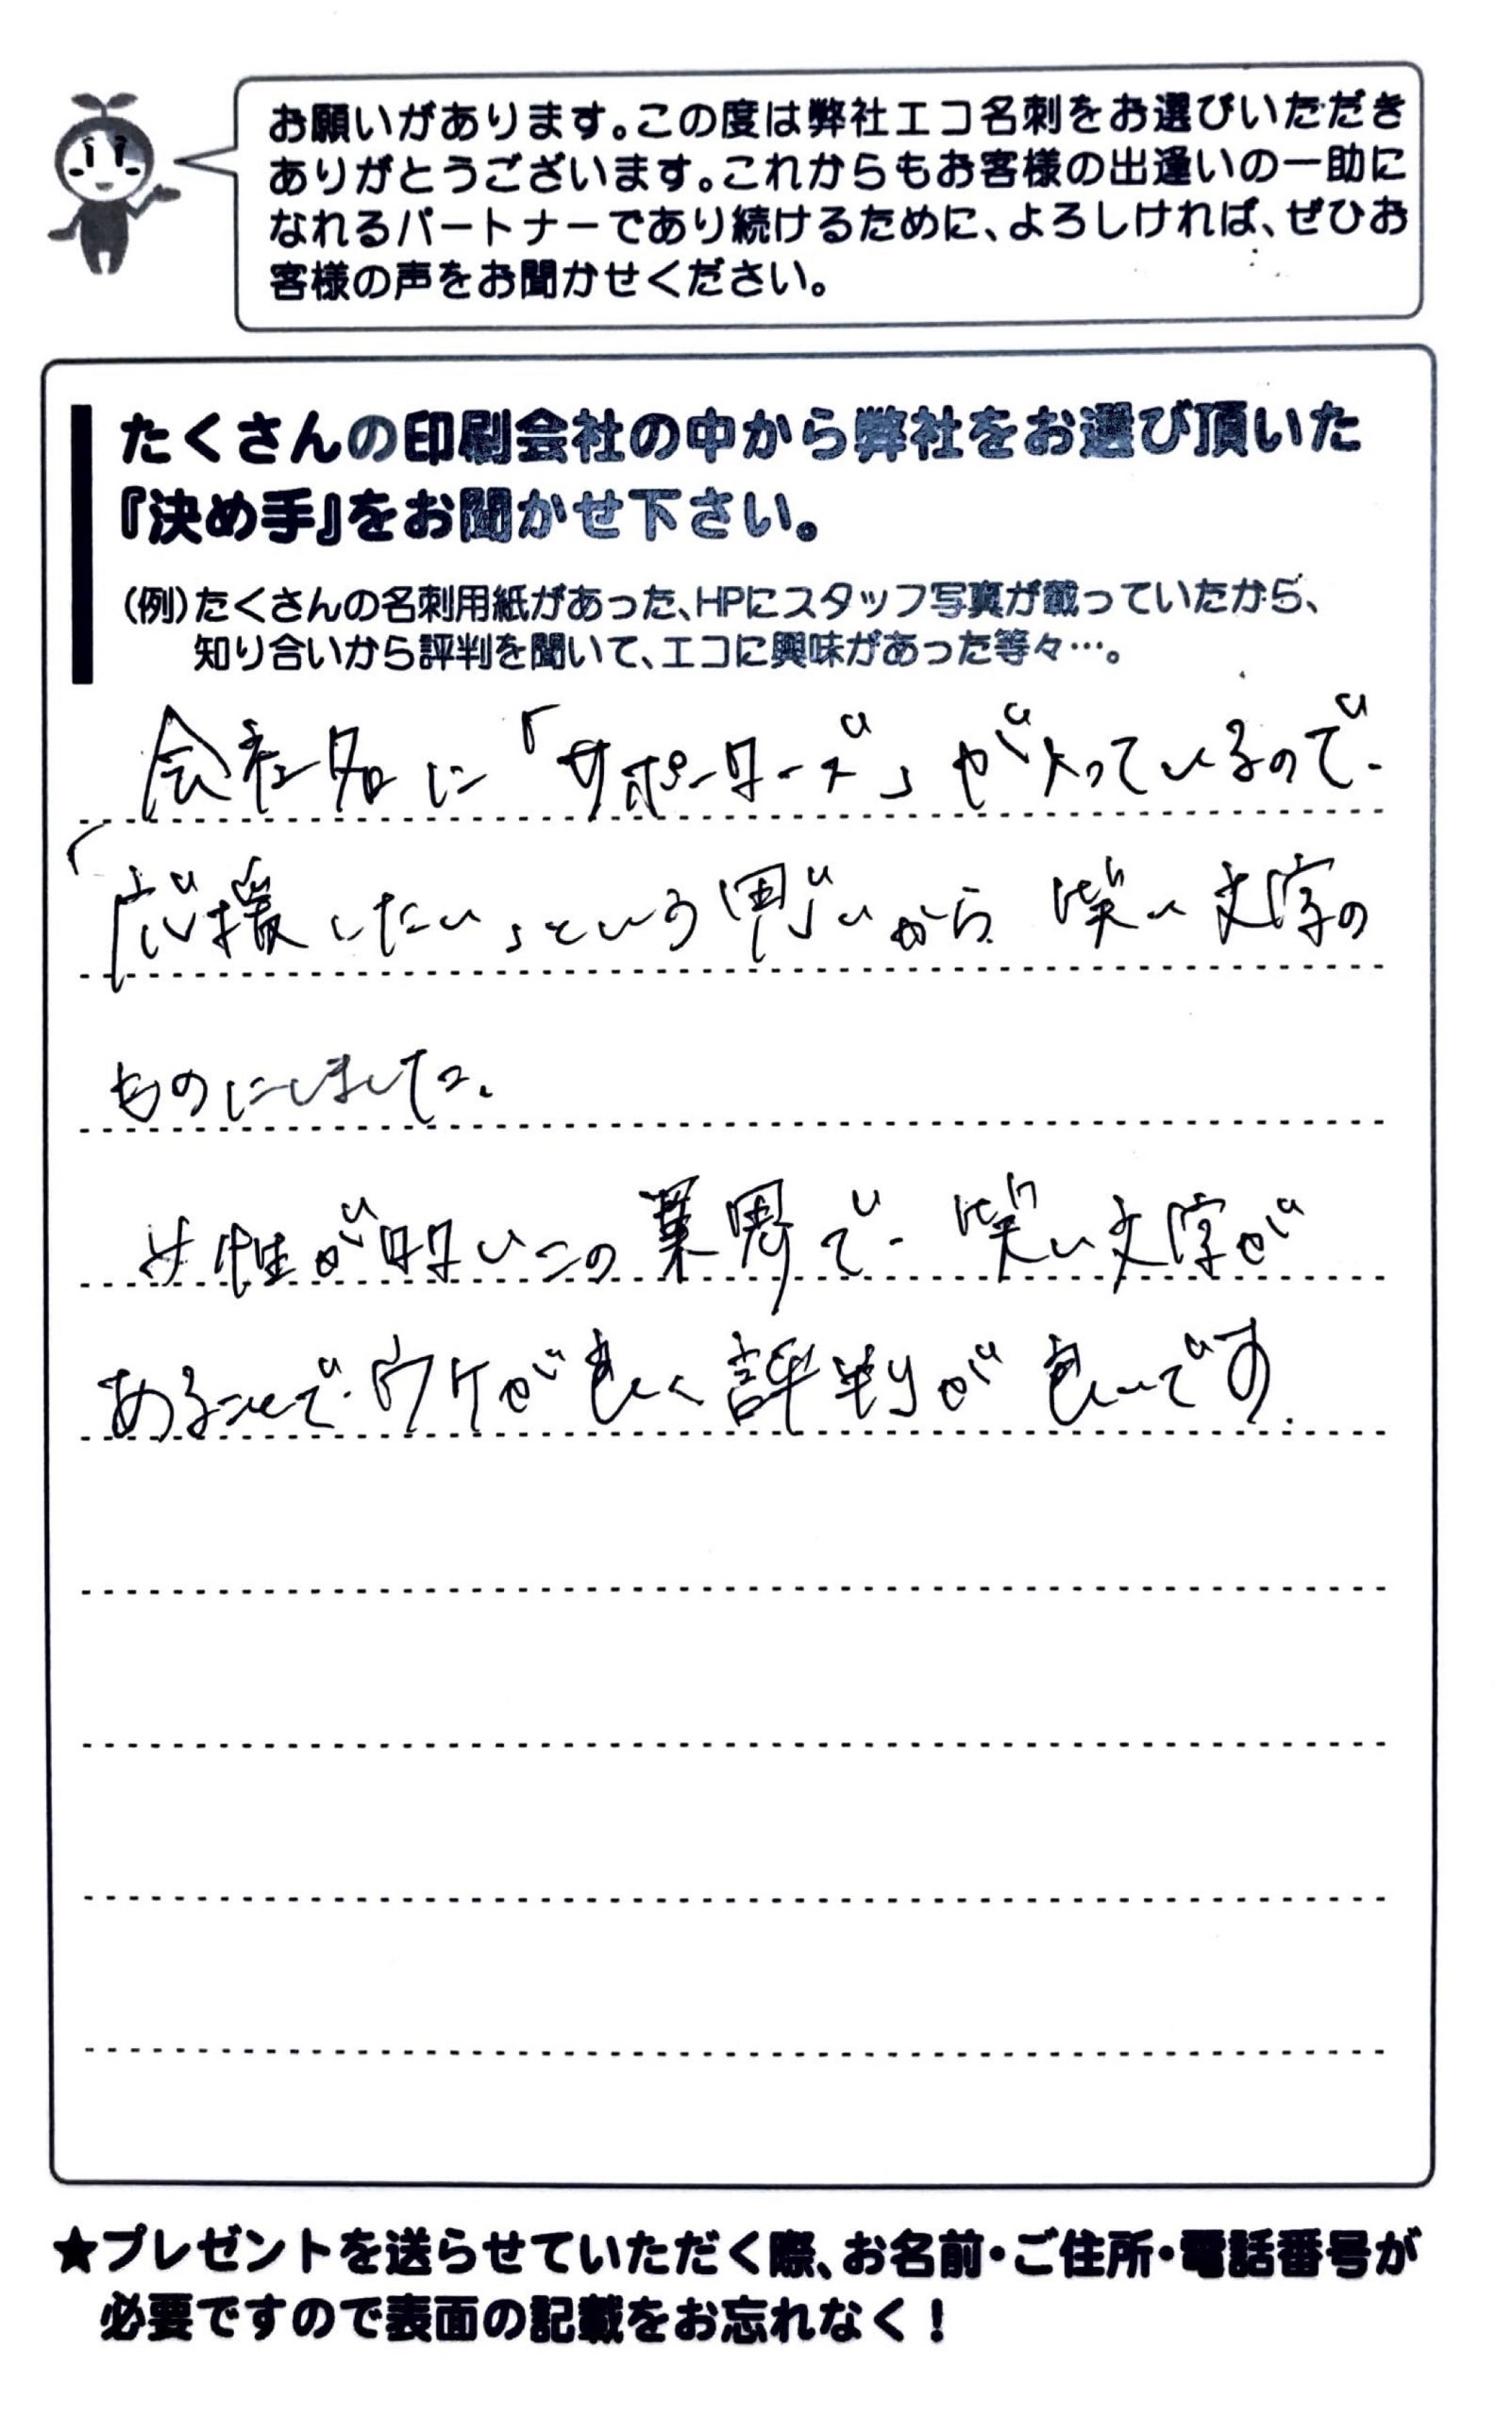 お願いがあります。この度は弊社エコ名刺をお選びいただき
ありがとうございます。これからもお客様の出逢いの一助に
なれるパートナーであり続けるために、よろしければ、ぜひお
客様の声をお聞かせください。
たくさんの印刷会社の中から弊社をお選び頂いた
『決め手』をお聞かせ下さい。
(例)たくさんの名刺用紙があった、HPにスタッフ写真が載っていたから、
知り合いから評判を聞いて、エコに興味があった等々…。
会社名に「サポーターズ」が入っているので、
「応援したい」という思いから 笑い文字の
ものにしました。
女性が多いこの業界で、笑い文字が
あることで、ウケが良く評判が良いです。
★プレゼントを送らせていただく際、お名前・ご住所・電話番号が
必要ですので表面の記載をお忘れなく!